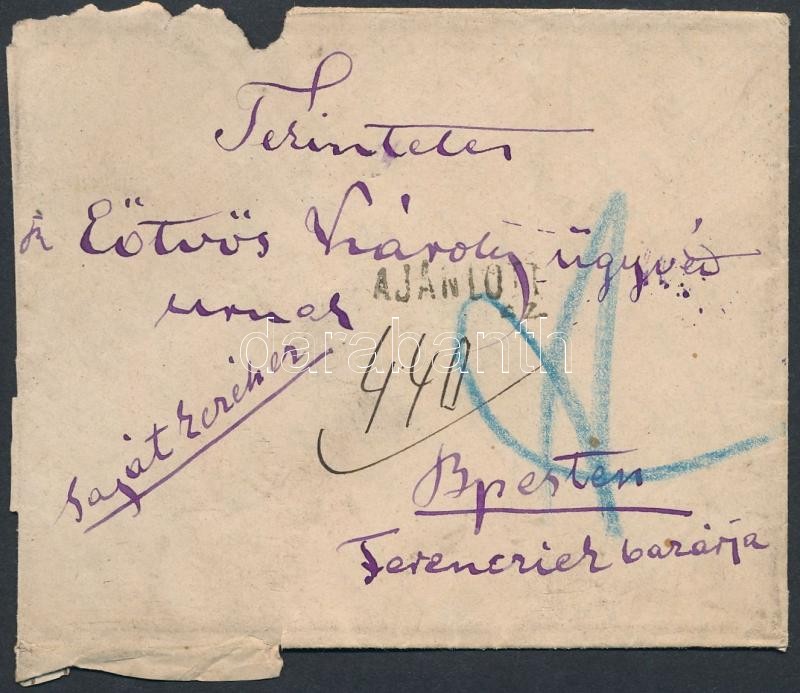 Tekintetes
Eötvös Károly ügyvéd
urnak
AJÁNLOTT
sz.
440
darabanth
saját kezéhez
Bpesten
Ferencziek bazárja